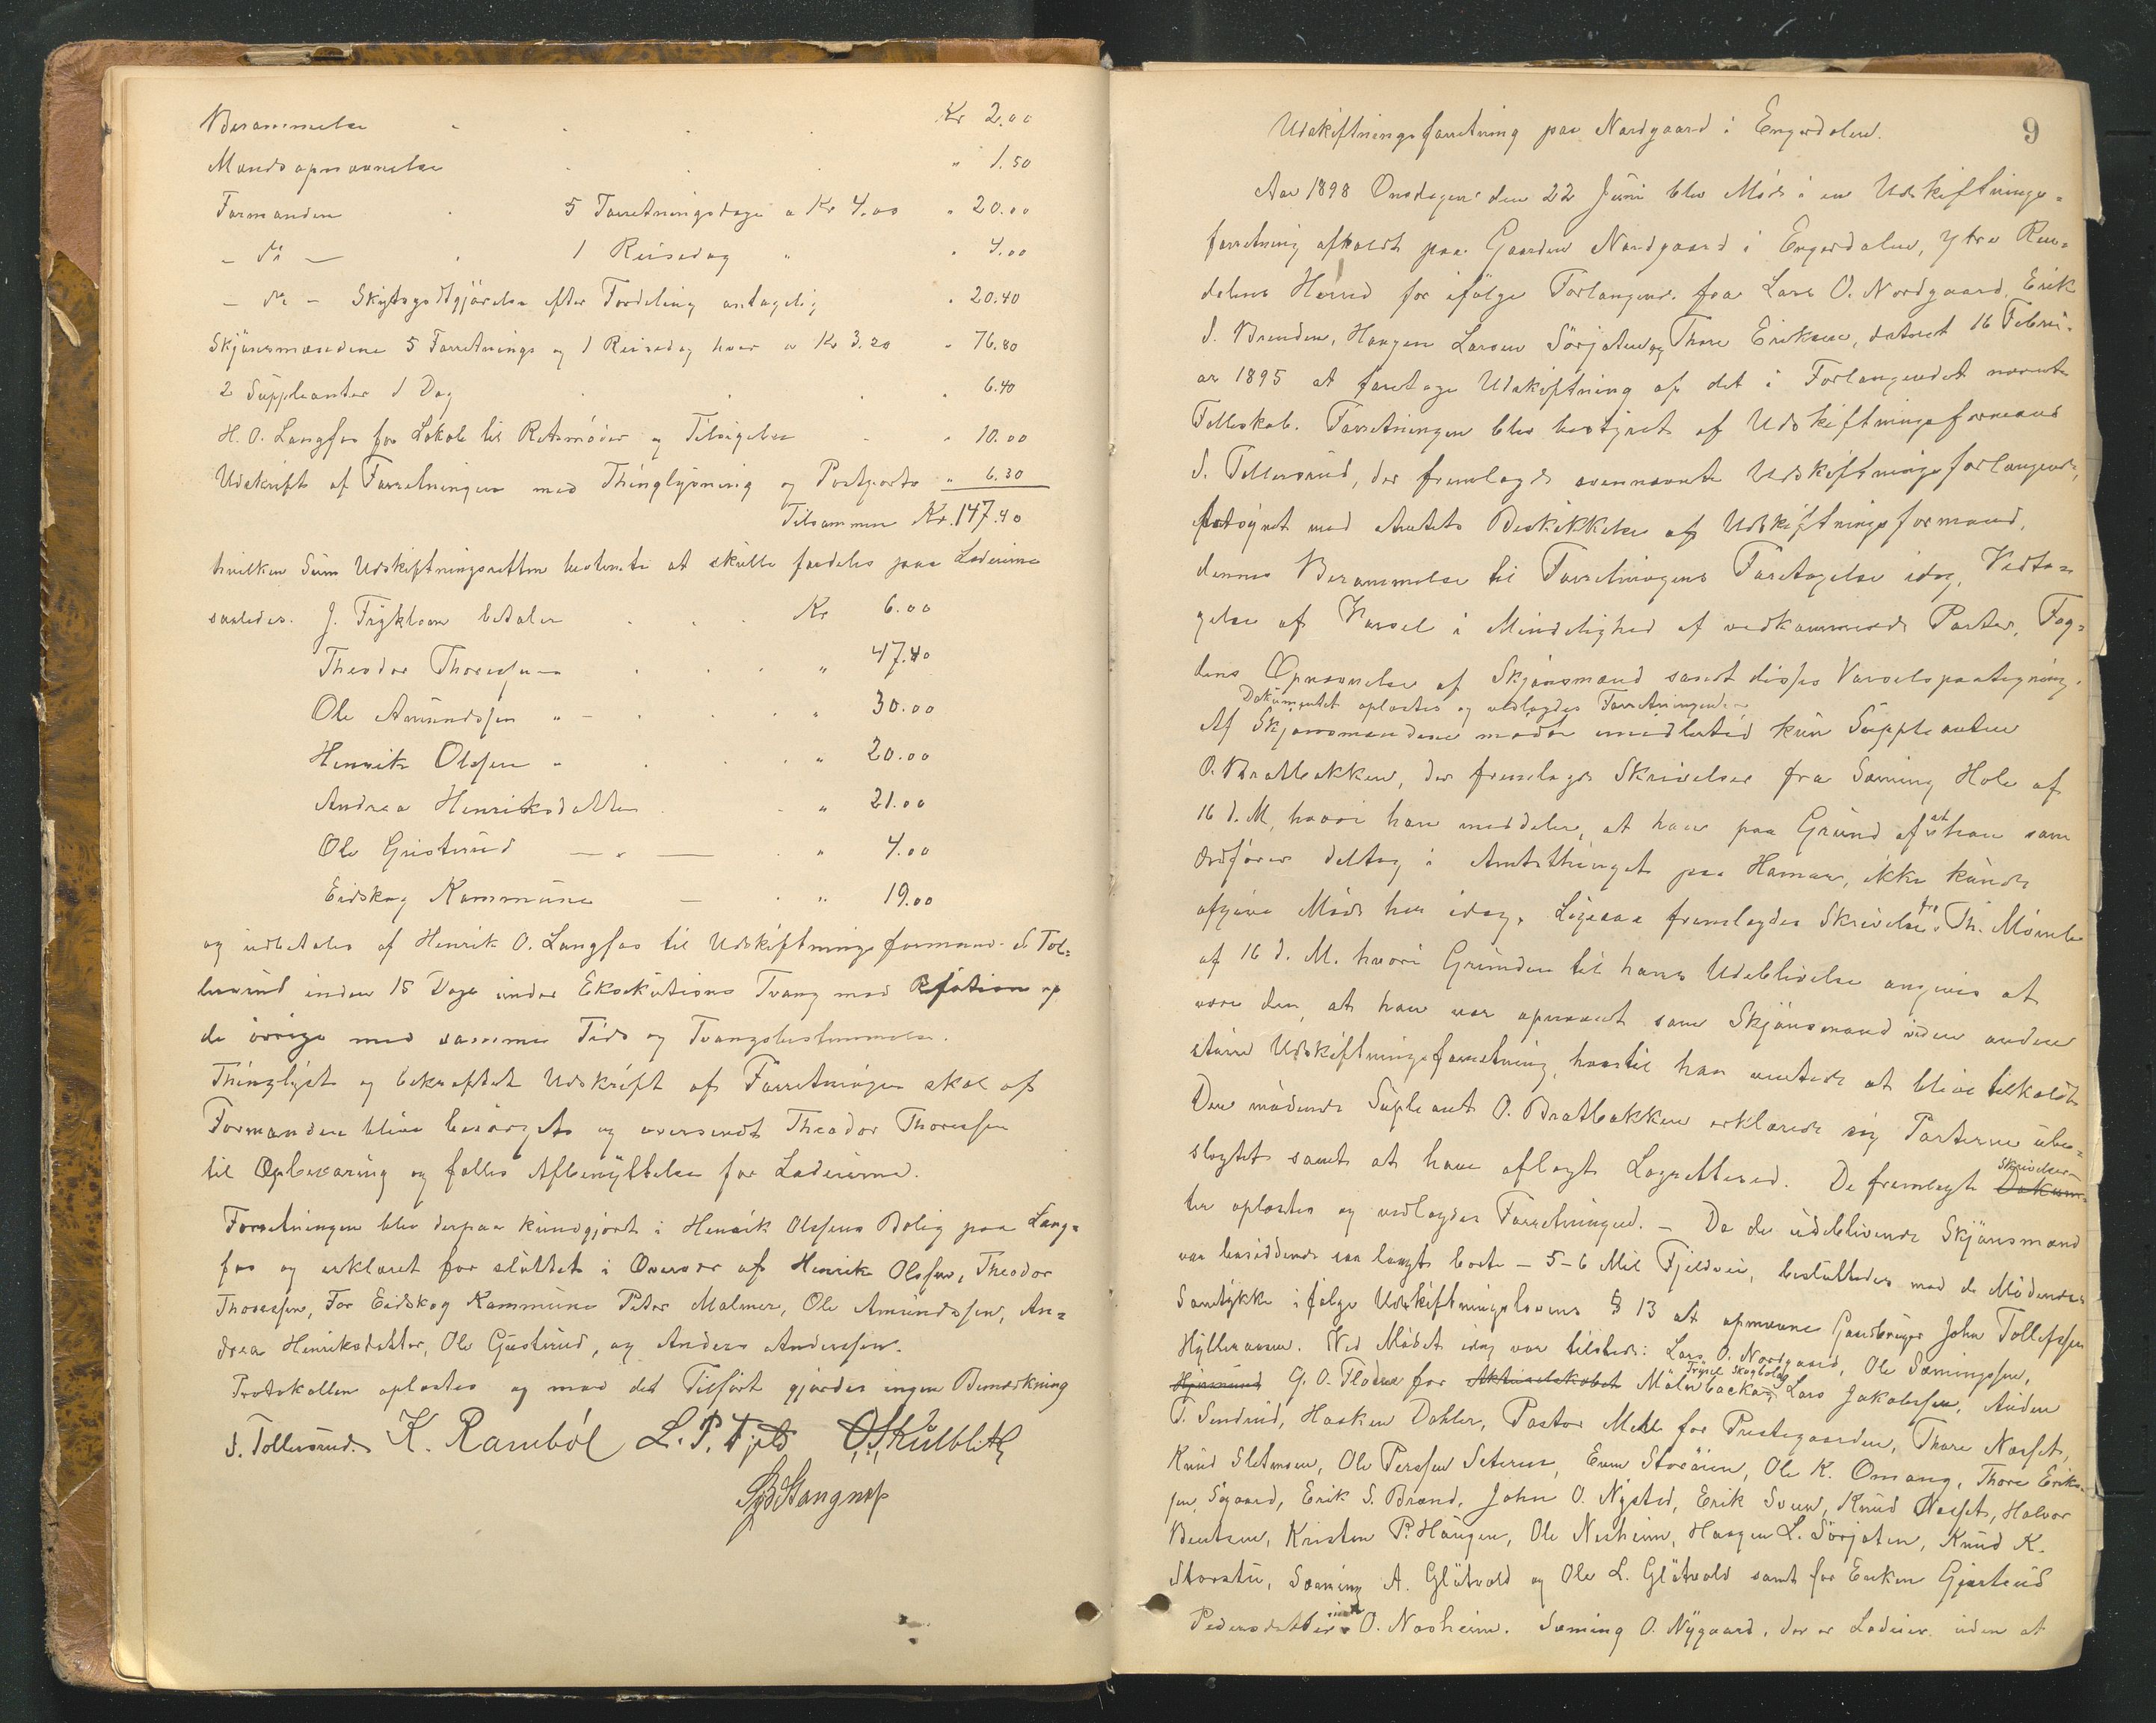 Berammelse . . . . Kr 2.00
Mandsopnævnelse . . . " 1.50
Formanden . 5 Forretningsdage a Kr 4.00 " 20.00
- do - . 1 Reisedag " " 4.00
- do - Skydsgodtgjörelse efter Fordeling antagelig " 20.40
Skjönsmændene 5 Forretnings og 1 Reisedag hver a Kr 3.20 " 76.80
2 Suppleanter 1 Dag . . . " 6.40
H. O. Langfos for Lokale til Retsmöder og Tilsigelse - " 10.00
Udskrift af Forretningen med Thinglysning og Postporto " 6.30
Tilsammen Kr. 147.40
hvilken Sum Udskiftningsretten bestemte at skulle fordeles paa Lodeierne
saaledes. J. Frykholm betaler . . . Kr 6.00
Theodor Thoressen . . . " 47.40
Ole Amundssen " - . . . " 30.00
Henrik Olssen - . . . " 20.00
Andrea Henriksdatter . - " 21.00
Ole Gustirud — " — . " 4.00
Eidskog Kommune — . " 19.00
og udbetales af Henrik O. Langfos til Udskiftningsformand S. Tol=
lersrud inden 15 Dage under Eksekutions Tvang med Refution af
de övrige med samme Tids og Tvangsbestemmelse.
Thinglyst og bekræftet Udskrift af Forretningen skal af
Formanden blive besörget og oversendt Theodor Thoressen
til Opbevaring og fælles Afbenyttelse for Lodeierne.
Forretningen blev derpaa kundgjort i Henrik Olssens Bolig paa Lang=
fos og erklæret for sluttet i Overvær af Henrik Olssen, Theodor
Thoressen, For Eidskog Kommune Peter Malmer, Ole Amundssen, An=
drea Henriksdatter, Ole Gustirud, og Anders Anderssen.
Protokollen oplæstes og mod det Tilförte gjordes ingen Bemærkning
S. Tollersrud. K. Ramböl L. P. Fjeld O. Skulblik
9
Udskiftningsforretning paa Nordgaard i Engerdalen.
Aar 1898 Onsdagen den 22 Juni blev Möde i en Udskiftnings=
forretning afholdt paa Gaarden Nordgaard i Engerdalen, Ytre Ren=
dalens Herred for ifölge Forlangende fra Lars O. Nordgaard, Erik
S. Brenden, Haagen Larsen Sörjoten og Thore Eriksen, dateret 16 Febru=
ar 1895 at foretage Udskiftning af det i Forlangendet nævnte
Fælleskab. Forretningen blev bestyret af Udskiftningsformand
S. Tollersrud, der fremlagde ovennævnte Udskiftningsforlangende,
paategnet med Amtets Beskikkelse af Udskiftningsformand,
dennes Berammelse til Forretningens Foretagelse idag, Vedta=
gelse af Varsel i Mindelighed af vedkommende Parter, Fog=
dens Opnævnelse af Skjönsmænd samt disses Varselspaategning.
Dokumentet oplæstes og vedlagdes Forretningen.
Af Skjönsmændene mödte imidlertid kun Suppleanten
O. Bratbakken, der fremlagde Skrivelse fra Sæming Hole af
16 d. M, hvori han meddeler, at han paa Grund af at han som
Ordförer deltog i Amtsthinget paa Hamar, ikke kunde
afgive Möde her idag. Ligesaa fremlagdes Skrivelse fra Th. Mömb
af 16 d. M. hvori Grunden til hans Udeblivelse angives at
være den, at han var opnævnt som Skjönsmand ved en anden
större Udskiftningsforretning, hvortil han ventede at blive tilkaldt.
Den mödende Supleant O. Bratbakken erklærede sig Parterne ube=
slægtet samt at have aflagt Lagrettesed. De fremlagte Skrivelser
ter oplæstes og vedlagdes Forretningen. - Da de udeblivende Skjönsmænd
var boesiddende saa langt borte - 5-6 Mil Fjeldvei, besluttedes med de Mödendes
Samtykke i fölge Udskiftningslovens § 13 at opnævne Gaardbruger John Tollefssen
Hylleraasen. Ved Mödet idag var tilstede: Lars O. Nordgaard, Ole Sæmingssen,
G. O. Floden for Aktieselskabet Trysil Skogbolag Mölnbacka, Lars Jakobssen, Auden
T. Sundrud, Hasken Dahler, Pastor Mehl for Præstegaarden, Thore Næsset,
Knud Sletmoen, Ole Perssen Seteren, Even Storöien, Ole K. Omang, Thore Erik=
sen, Sögaard, Erik S. Brænd, John O. Nysted, Erik Sven, Knud Næsset, Halvor
Bentsen, Kristen P. Haugen, Ole Nesheim, Haagen L. Sörjoten, Knud K.
Storstu, Sæming A. Glötvold og Ole L. Glötvold samt for Enken Gjertrud
Pedersdatter O. Nesheim. Sæming O. Nygaard, der er Lodeier uden at